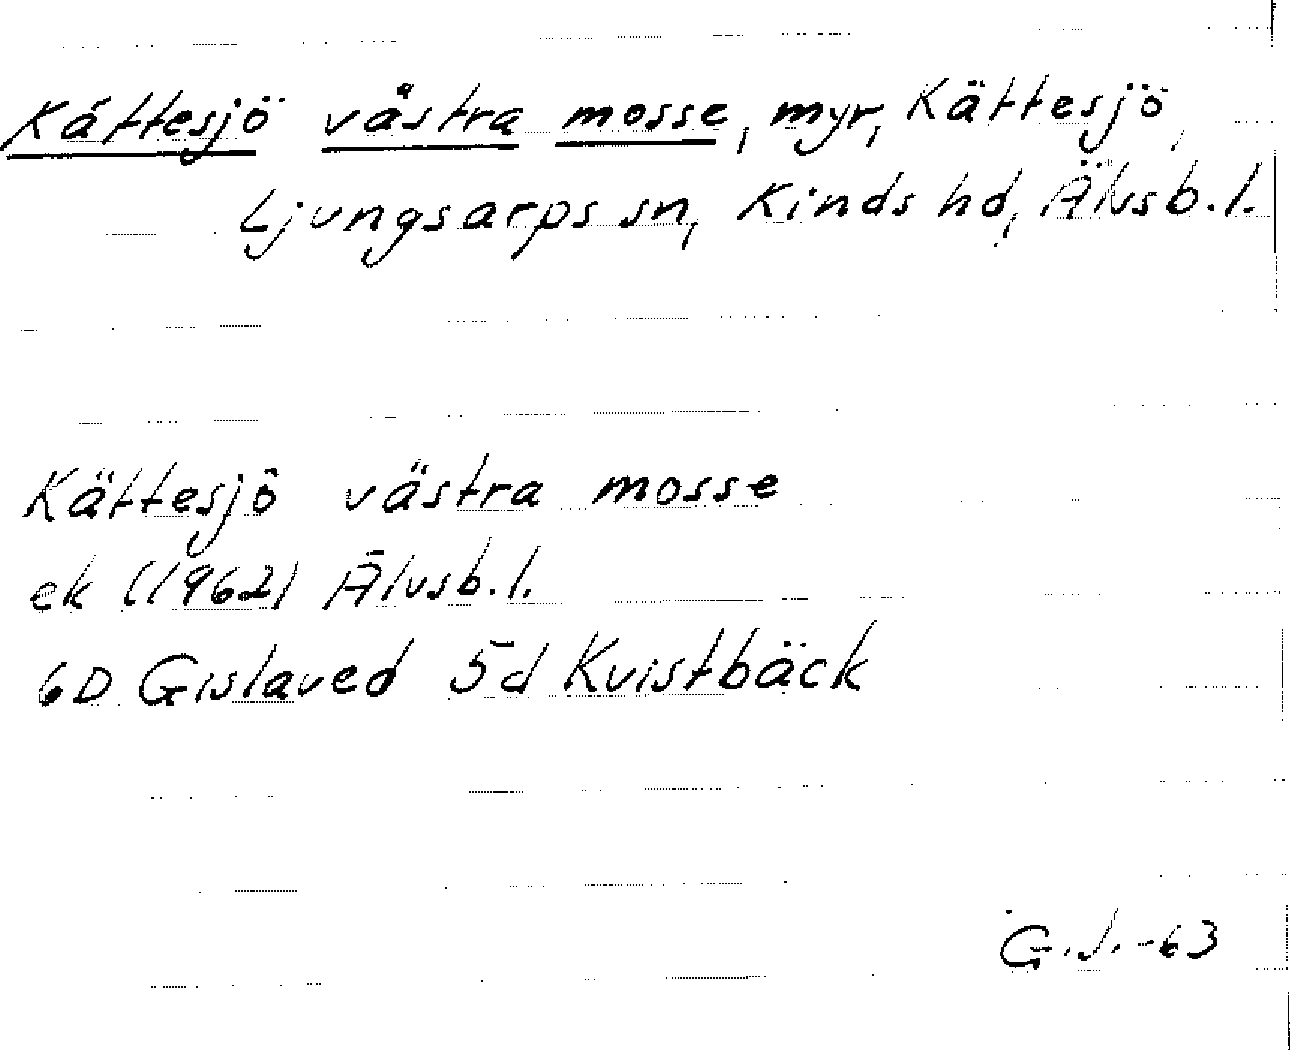 Kättesjö västra mosse, myr, Kättesjö,
Ljungsarps sn, Kinds hd, Älvsb. l.
Kättesjö västra mosse
ek (1962) Älvsb. l.
6D Gislaved 5d Kvistbäck
G. J. -63